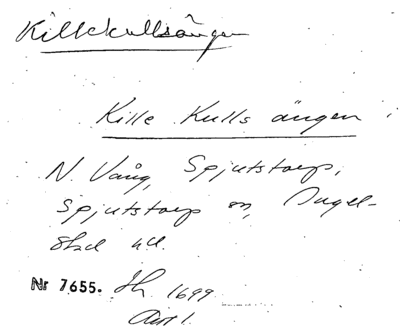 Killekullsängen
Kille Kulls ängen
N. Vång, Spjutstorp,
Spjutstorp sn, Ingel-
stad hd.
Nr 7655. Jb. 1699
Avt 1.